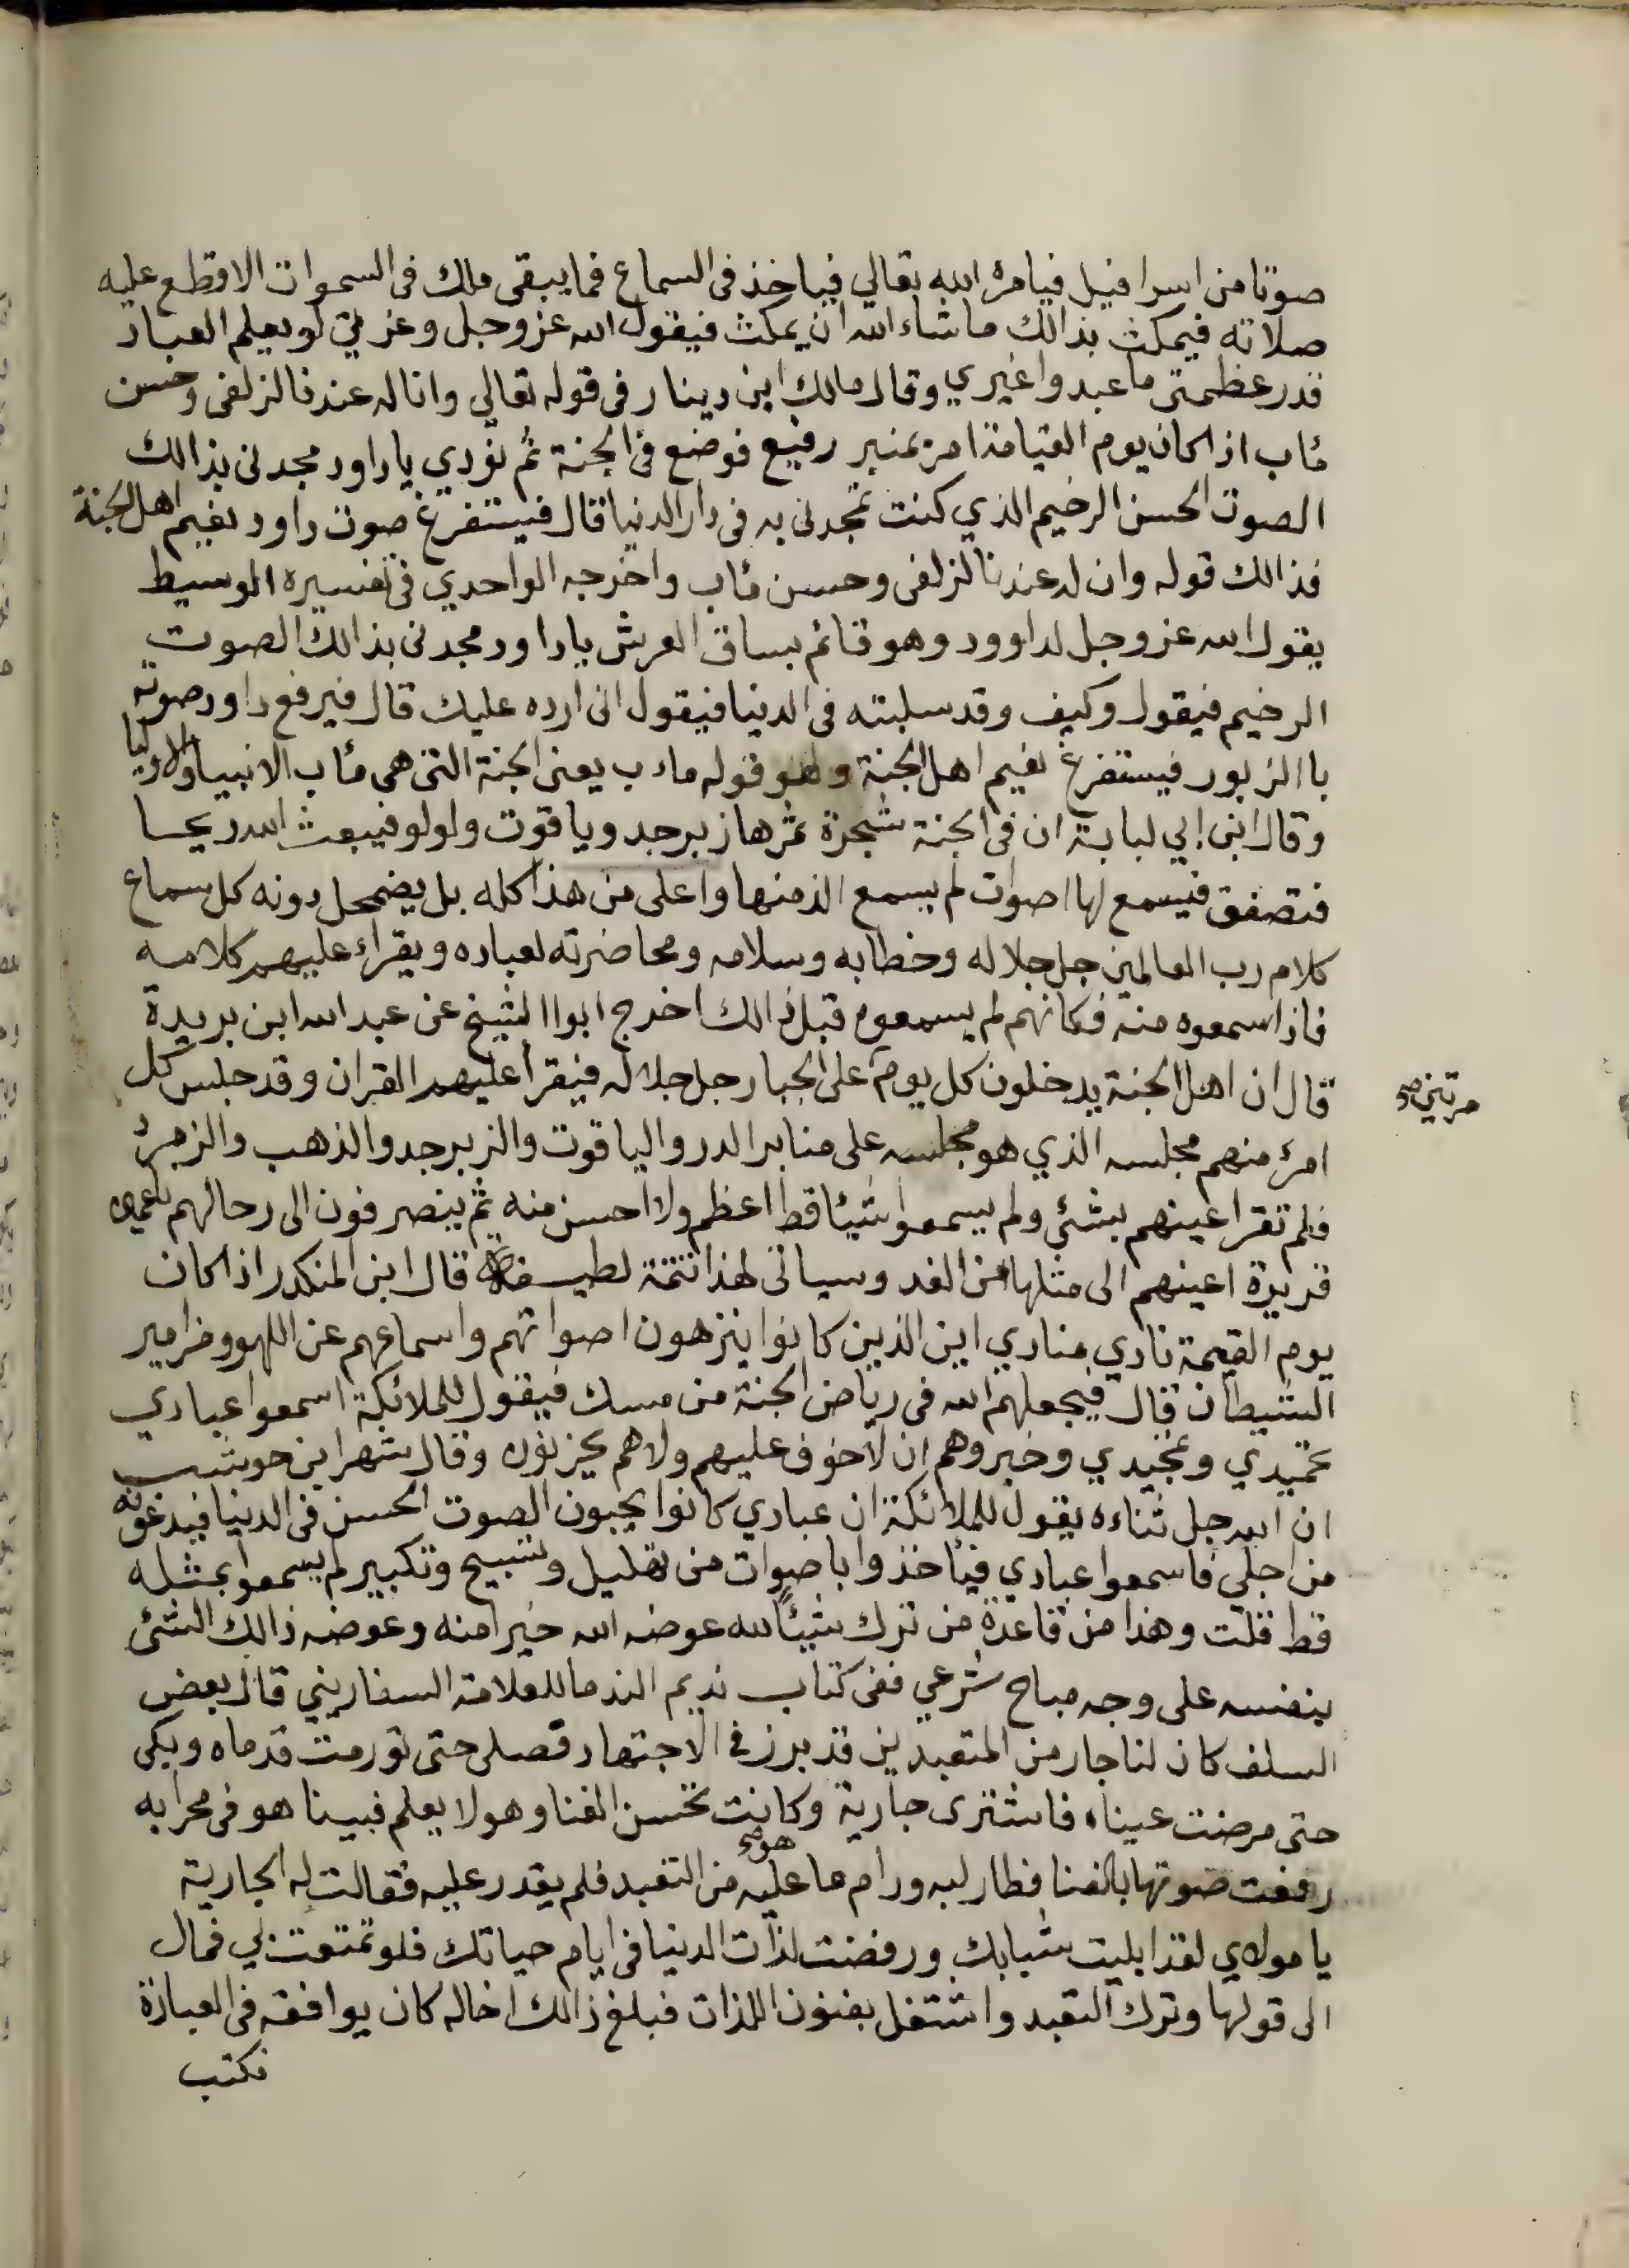 صوتا من اسرافيل فيامره الله تعالي فياخذ في السماع فما يبقى ملك في السموات الا وقطع عليه
صلاته فيمكث بذالك ماشاء الله ان يمكث فيقول الله عز وجل وعزتي لو يعلم العباد
قدر عظمتى ما عبدوا غيري وقال مالك ابن دينار في قوله تعالي وان له عندنا لزلفى وحسن
مٔاب اذا كان يوم القيامة امر بمنبر رفيع فوضع في الجنة ثم نودي يا داود مجدنى بذالك
الصوت الحسن الرخيم الذي كنت تمجدنى به فى دار الدنيا قال فيستفرغ صوت داود نعيم اهل الجنة
فذالك قوله وان له عندنا لزلفى وحسن مٔاب واخرجه الواحدي في تفسيره الوسيط
يقول الله عز وجل لداوود وهو قائم بساق العرش يا داود مجدنى بذالك الصوت
الرخيم فيقول وكيف وقد سلبته فى الدنيا فيقول انى ارده عليك قال فيرفع داود صوته
باالزبور فيستفرغ نعيم اهل الجنة وهو قوله مٔاب يعنى الجنة التى هى مٔاب الانبيا والاوليا
وقال ابن ابي لبابة ان فى الجنة شجرة ثمرها زبرجد وياقوت ولولو فيبعث الله ريحا
فتصفق فيسمع لها اصوات لم يسمع الذ منها واعلى من هذا كله بل يضمحل دونه كل سماع
كلام رب العالمين جل جلاله وخطابه وسلامه ومحاضرته لعباده ويقراء عليهم كلامه
فاذا سمعوه منه فكانهم لم يسمعوه قبل ذالك اخرج ابوا الشيخ عن عبد الله ابن بريدة
قال ان اهل الجنة يدخلون كل يوم على الجبار جل جلاله فيقرأ عليهم القران وقد جلس كل
مرتين صح
امرئ منهم مجلسه الذي هو مجلسه على منابر الدر والياقوت والزبرجد والذهب والزمرد
فلم تقر اعينهم بشئ ولم يسمعوا شيئا قط اعظم ولا احسن منه ثم ينصرفون الى رحالهم ناعمين
قريرة اعينهم الى مثلها من الغد وسياتى لهذا تتمة لطيفة قال ابن المنكدر اذا كان
يوم القيمة نادي منادي اين الذين كانوا ينزهون اصواتهم واسماعهم عن اللهو ومزامير
الشيطان قال فيجعلهم الله فى رياض الجنة من مسك فيقول للملائكة اسمعوا عبادي
تحميدي وتمجيدي وخبروهم ان لا خوف عليهم ولا هم يحزنون وقال شهر ابن حوشب
ان الله جل ثناءه يقول للملائكة ان عبادي كانوا يحبون الصوت الحسن فى الدنيا فيدعونه
من اجلي فاسمعوا عبادي فئاخذوا باصوات من تهليل وتسبيح وتكبير لم يسمعوا بمثله
قط قلت وهذا من قاعدة من ترك شيئًا لله عوضه الله خيرا منه وعوضه ذالك الشئ
بنفسه على وجه مباح شرعي ففى كتاب نديم الندما للعلامة السفاريني قال بعض
السلف كان لنا جار من المتعبدين قد برز في الاجتهاد فصلى حتى تورمت قدماه وبكى
حتى مرضت عيناه فاشترى جارية وكانت تحسن الغنا وهو لا يعلم فبينا هو فى محرابه
رفعت صوتها بالغنا فطار لبه ورام ما هو صح عليه من التعبد فلم يقدر عليه فقالت له الجارية
يا مولاي لقد ابليت شبابك ورفضت لذات الدنيا فى ايام حياتك فلو تمتعت بي فمال
الى قولها وترك التعبد واشتغل بفنون اللذات فبلغ ذالك اخا له كان يوافقه فى العبادة
فكتب